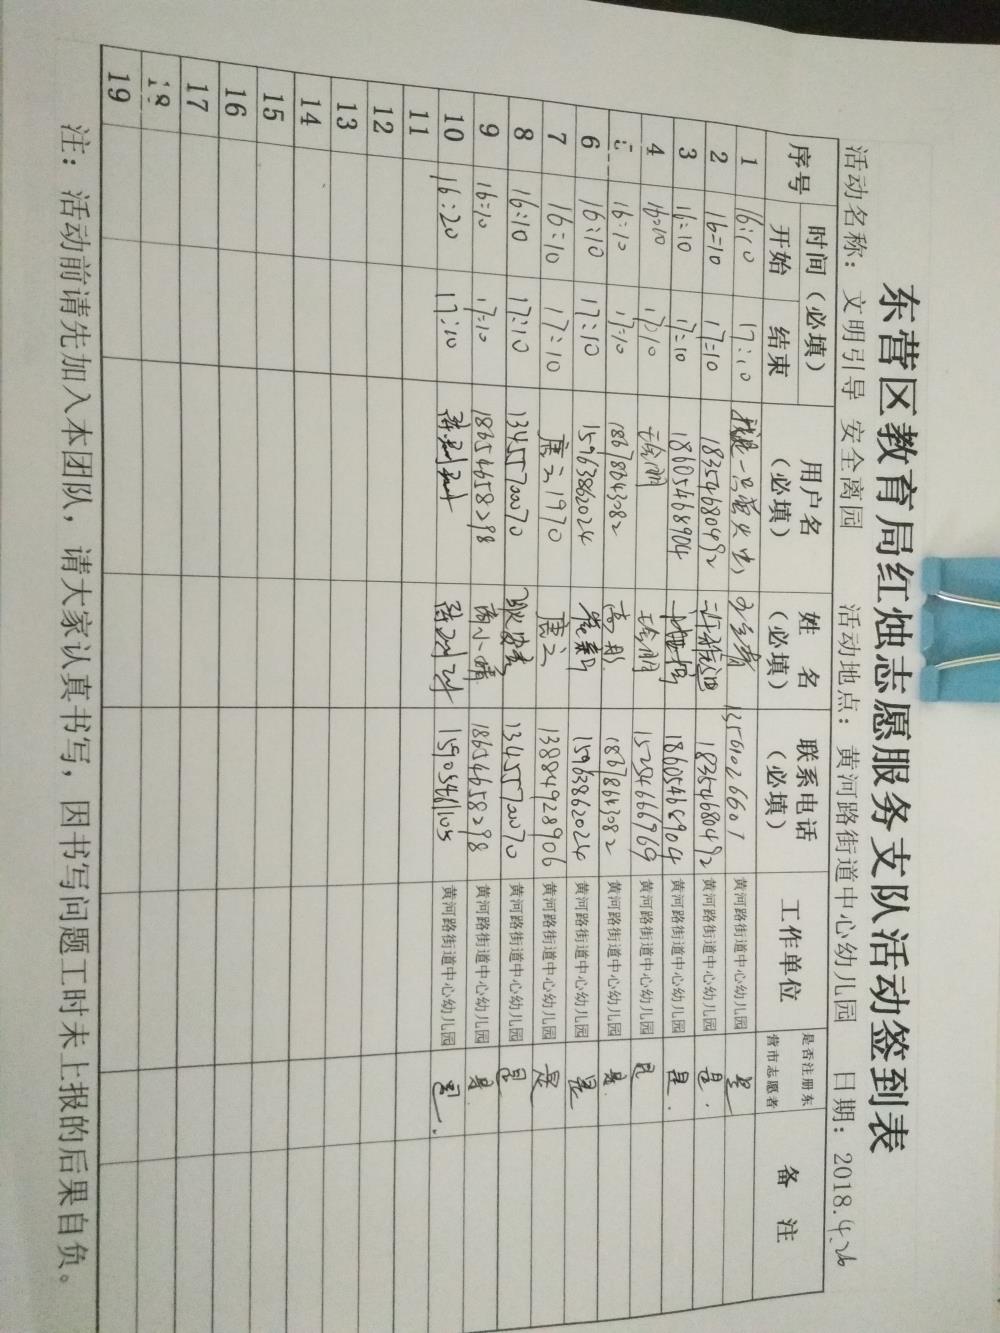 东营区教育局红烛志愿服务支队活动签到表
活动名称：文明引导 安全离园 活动地点：黄河路街道中心幼儿园 日期：2018.4.26
序号 时间（必填） 用户名（必填） 姓名（必填） 联系电话（必填） 工作单位 是否注册东营市志愿者 备注
开始 结束
1 16:10 17:10 我是一只萤火虫 13561026601 黄河路街道中心幼儿园 是
2 16:10 17:10 18354680492 18354680492 黄河路街道中心幼儿园 是.
3 16:10 17:10 18605468904 18605468904 黄河路街道中心幼儿园 是.
4 16:10 17:10 15254666769 黄河路街道中心幼儿园 是
5 16:10 17:10 18678643082 高彤 18678643082 黄河路街道中心幼儿园 是.
6 16:10 17:10 15963862024 15963862024 黄河路街道中心幼儿园 是
7 16:10 17:10 唐云1970 唐云 13884928906 黄河路街道中心幼儿园 是
8 16:10 17:10 13455700070 13455700070 黄河路街道中心幼儿园 是
9 16:10 17:10 18654658298 18654658298 黄河路街道中心幼儿园 是.
10 16:20 17:10 15905461105 黄河路街道中心幼儿园
11
12
13
14
15
16
17
18
19
注：活动前请先加入本团队，请大家认真书写，因书写问题工时未上报的后果自负。